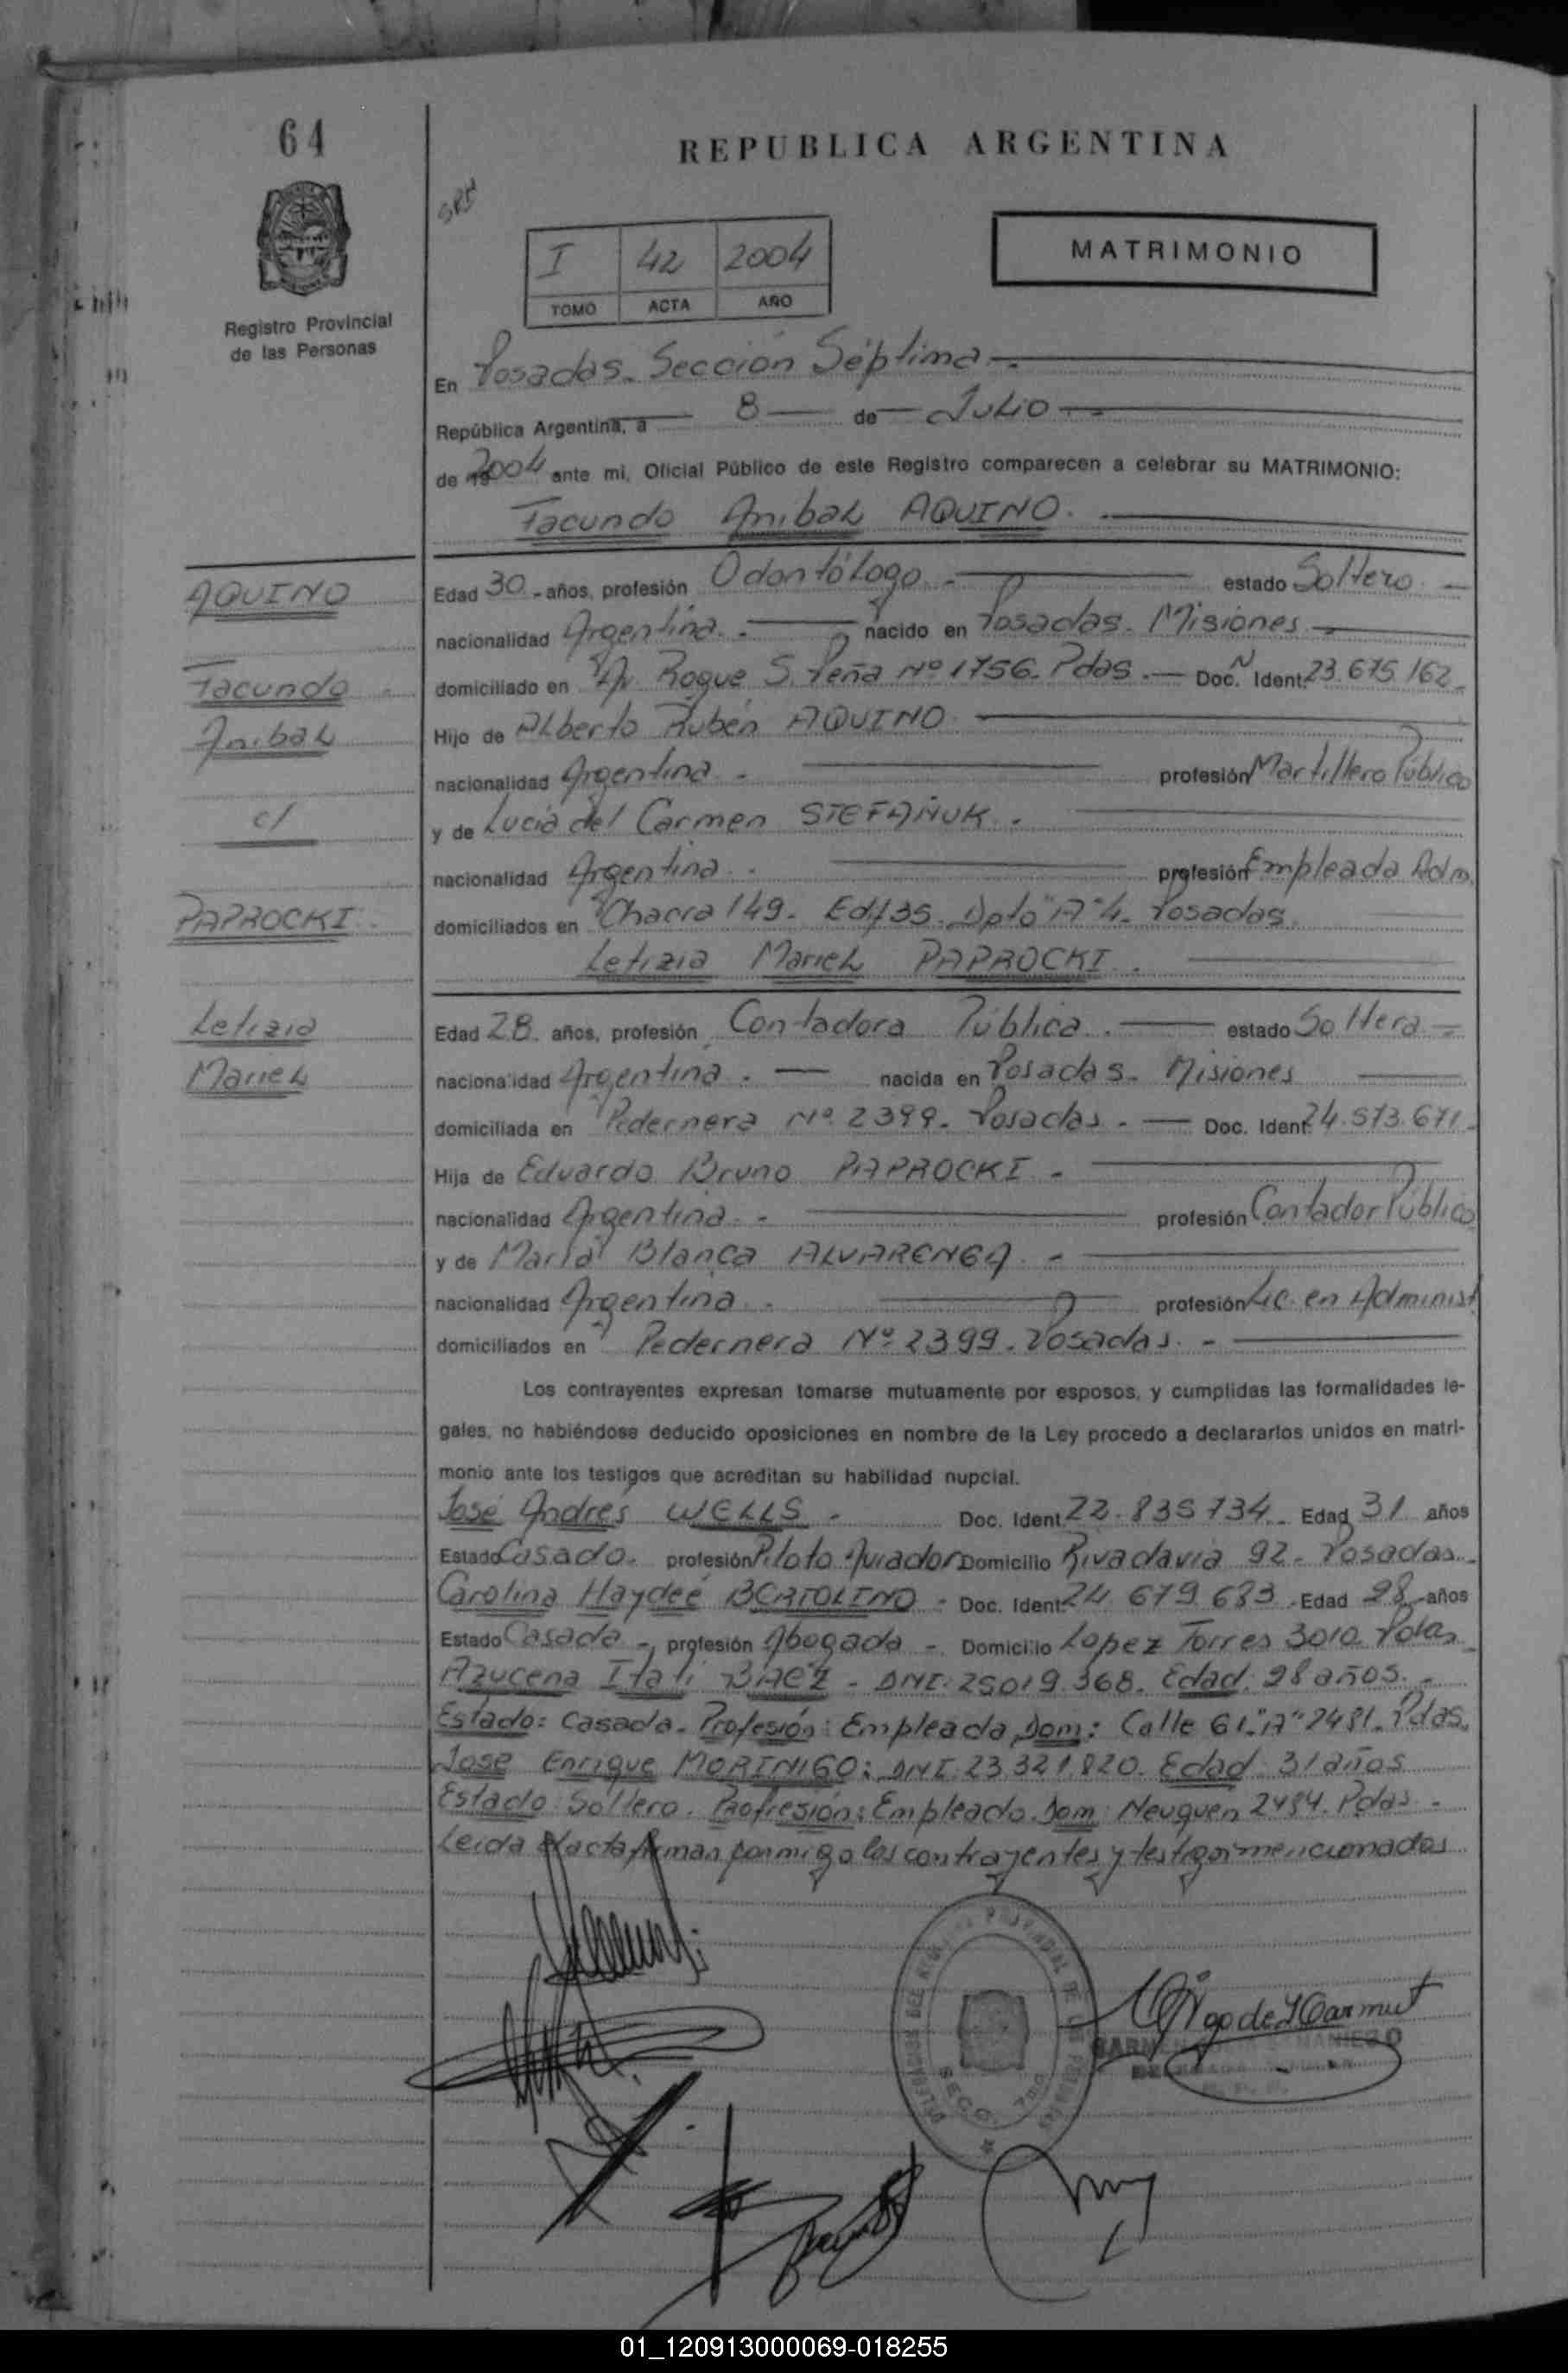 64
REPUBLICA ARGENTINA
I 42 2004
TOMO ACTA AÑO
MATRIMONIO
Registro Provincial
de las Personas
En Posadas. Sección Séptima
República Argentina, a 8 de Julio
de 2004 ante mi, Oficial Público de este Registro comparecen a celebrar su MATRIMONIO:
Facundo Anibal AQUINO.
AQUINO
Facundo
Anibal
c/
PAPROCKI
Letizia
Mariel
Edad 30 años, profesión Odontólogo estado Soltero
nacionalidad Argentina. nacido en Posadas. Misiones
domiciliado en Av. Roque S. Peña Nº 1756. Pdas. Doc. Ident. 23.675.162
Hijo de Alberto Rubén AQUINO
nacionalidad Argentina profesión Martillero Público
y de Lucía del Carmen STEFAÑUK.
nacionalidad Argentina profesión Empleada Adm.
domiciliados en Chacra 149. Edif 35. Dpto "A" 4. Posadas.
Letizia Mariel PAPROCKI.
Edad 28 años, profesión Contadora Pública. estado Soltera
nacionalidad Argentina. nacida en Posadas. Misiones
domiciliada en Pedernera Nº 2399. Posadas. Doc. Ident. 24.573.671
Hija de Eduardo Bruno PAPROCKI.
nacionalidad Argentina profesión Contador Público
y de María Blanca ALVARENGA.
nacionalidad Argentina. profesión Lic. en Administ
domiciliados en Pedernera Nº 2399. Posadas.
Los contrayentes expresan tomarse mutuamente por esposos, y cumplidas las formalidades le-
gales, no habiéndose deducido oposiciones en nombre de la Ley procedo a declararlos unidos en matri-
monio ante los testigos que acreditan su habilidad nupcial.
José Andrés WELLS Doc. Ident. 22.835.734 Edad 31 años
Estado Casado. profesión Piloto Aviador Domicilio Rivadavia 92. Posadas.
Carolina Haydeé BERTOLINO Doc. Ident. 24.679.683 Edad 28 años
Estado Casada profesión Abogada Domicilio Lopez Torres 3010 Pdas
Azucena Itatí BAEZ - DNI: 25019.368. Edad: 28 años.
Estado: Casada. Profesión: Empleada Dom: Calle 61 "A" 2481. Pdas.
Jose Enrique MORINIGO: DNI. 23.321.820. Edad 31 años
Estado: Soltero. Profresión: Empleado. Dom: Neuquén 2484. Pdas.
Leida el acta firman conmigo los contrayentes y testigos mencionados
01_120913000069-018255